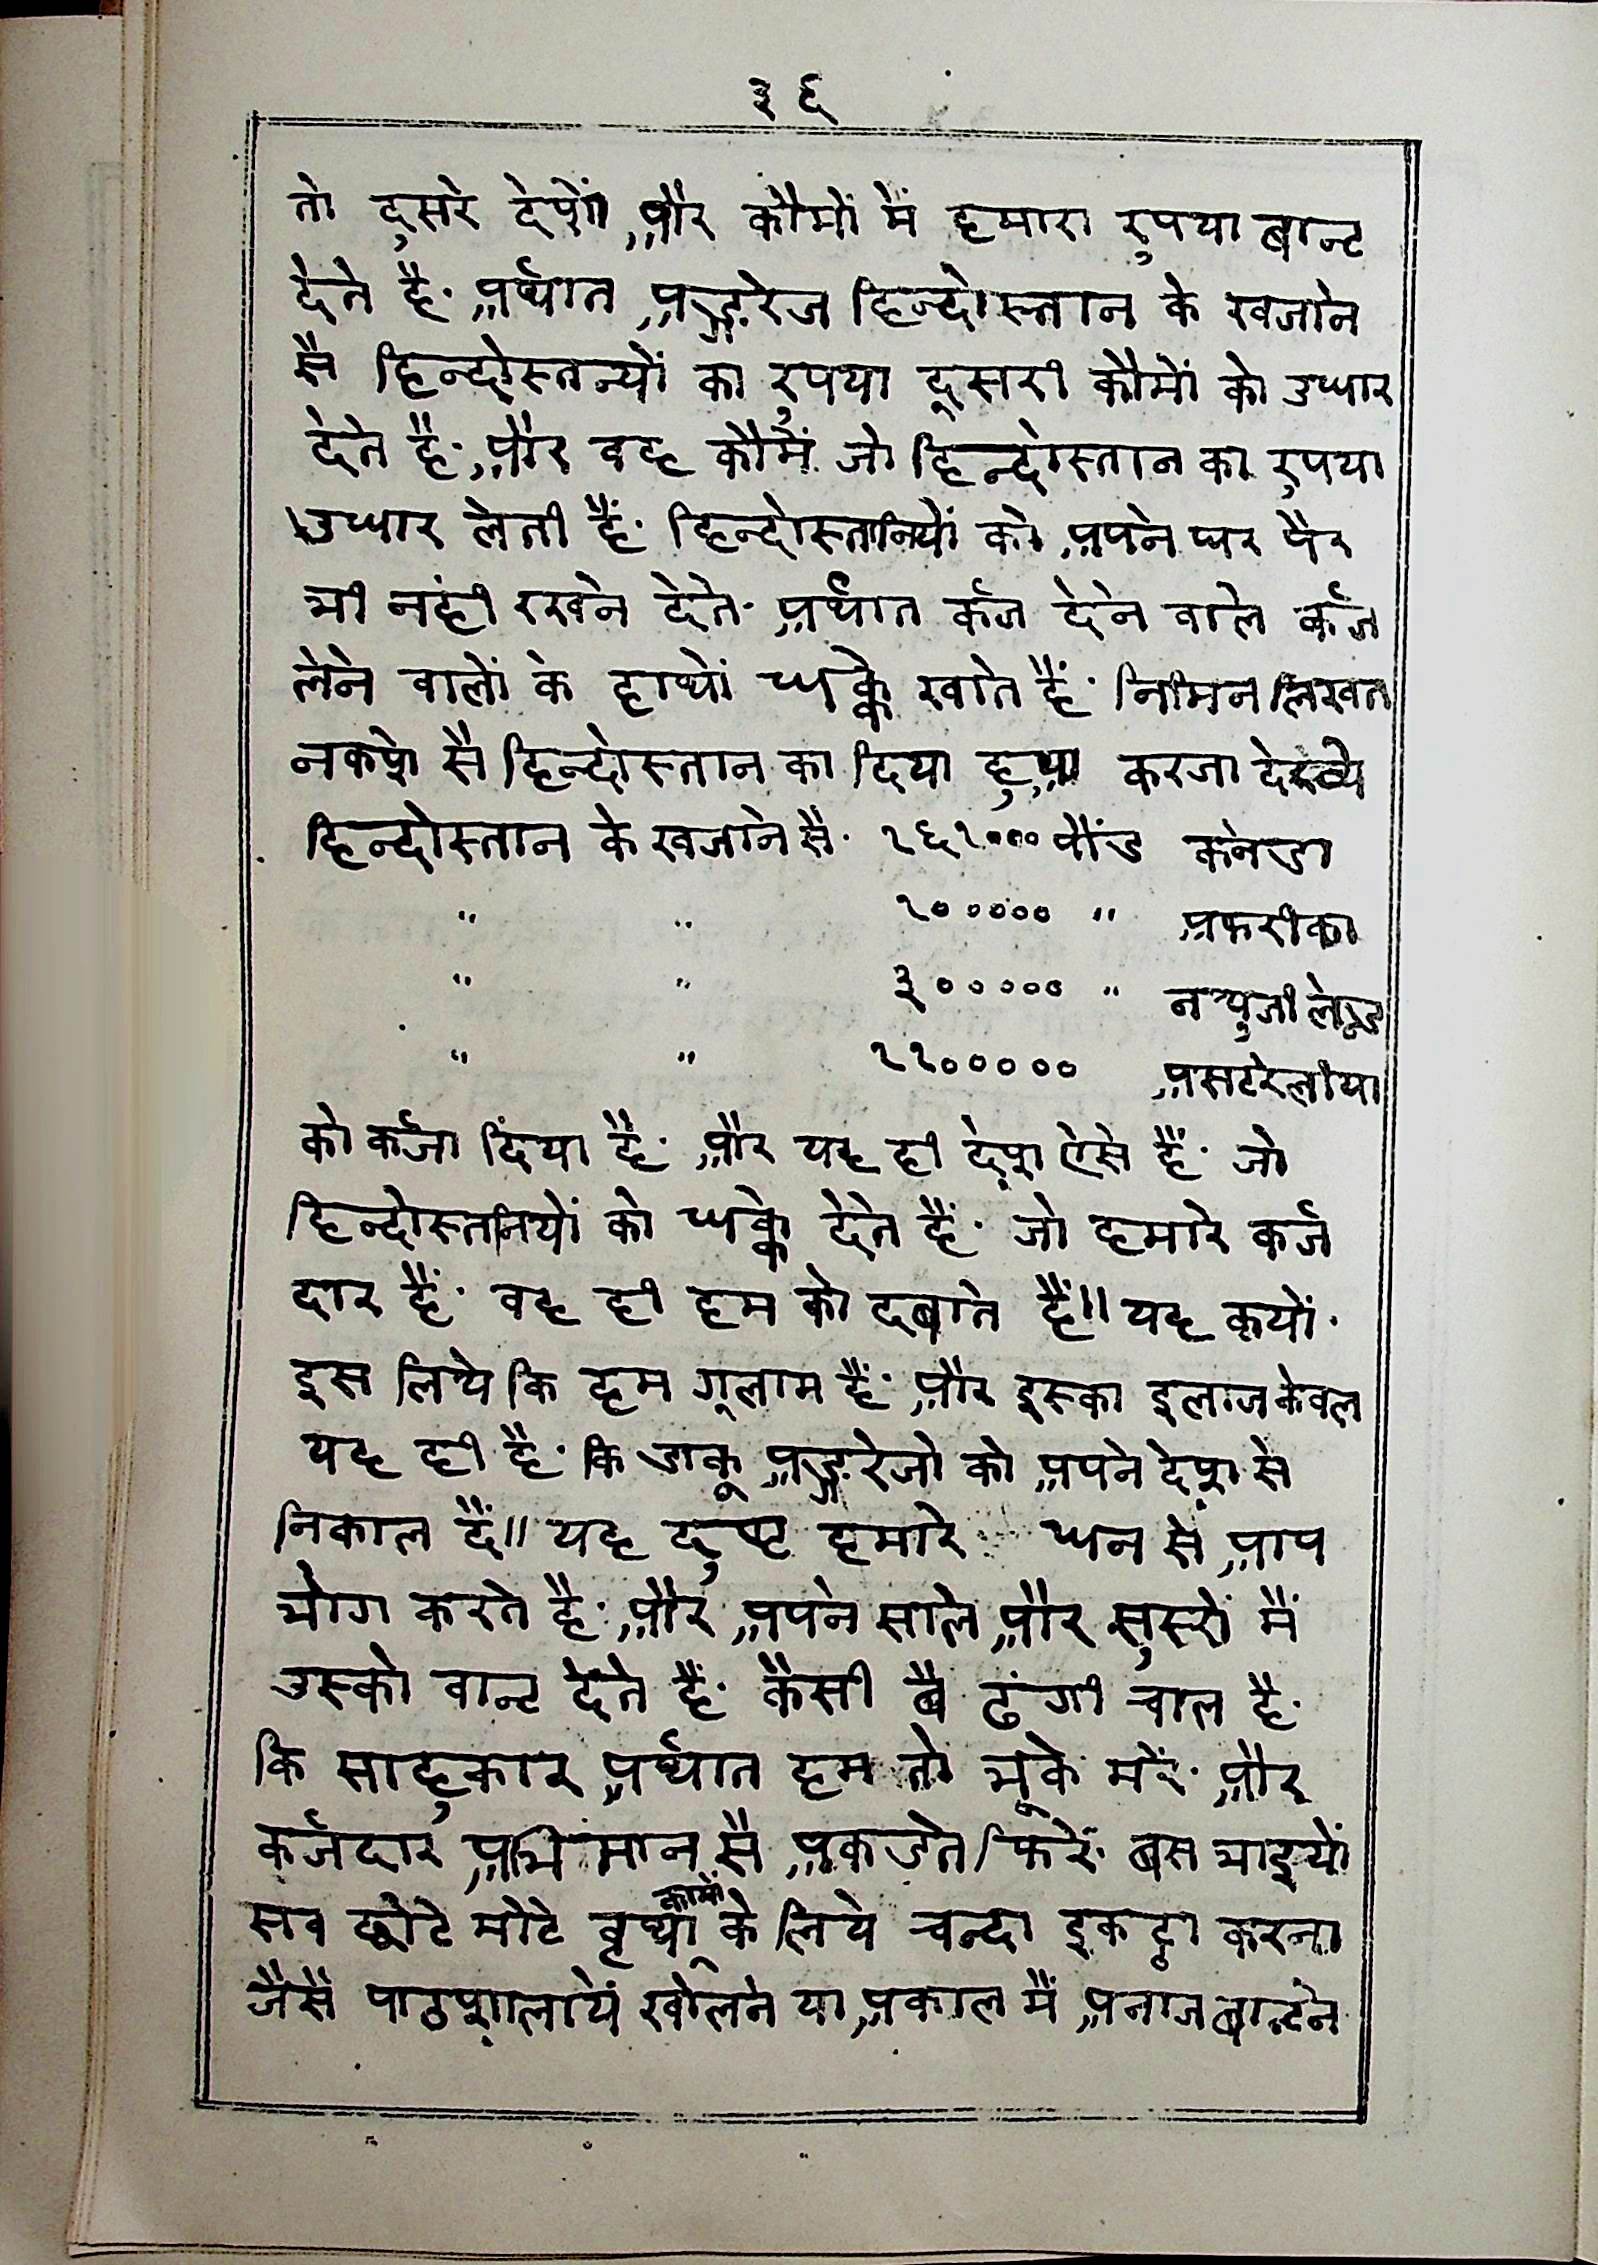 ३६
तो दुसरे देशों और कौमों में हमारा रुपया बान्ट
देते है· अर्थात अङ्गरेज हिन्दोस्तान के खजाने
सै हिन्दोस्तन्यों का रुपया दूसरी कौमों को उधार
देते है· और वह कौमें जो हिन्दोस्तान का रुपया
उधार लेती हैं· हिन्दोस्तानियों को अपने घर पैर
भी नंही रखने देते· अर्थात कर्ज देने वाले कर्ज
लेने वालों के हाथों धक्के खाते हैं· निमिन लिखत
नकशे सै हिन्दोस्तान का दिया हुआ करजा देख्ये
हिन्दोस्तान के खजाने सै· २६२००० पौंड कनेडा
" " २००००० " अफरीका
" " ३००००० " नयुजी लेण्ड
" " २२००००० असटरेलीया
को कर्जा दिया है· और यह ही देश ऐसे हैं· जो
हिन्दोस्तनियों को धक्के देते हैं· जो हमारे कर्ज
दार हैं· वह ही हम को दबाते हैं॥ यह कयों·
इस लिये कि हम गूलाम हैं· और इस्का इलाज केवल
यह ही है· कि डाकू अङ्गरेजो को अपने देश से
निकाल दें॥ यह दुष्ट हमारे धन से आप
भोग करते है· और अपने साले और सुस्रों में
उस्को वान्ट देते हैं· कैसी बै ढंगी चाल है·
कि साहुकार अर्थात हम तो भूके मरें· और
कर्जदार अभिमान सै अकडते फिरें· बस भाइयों
सब छोटे मोटे बृथा कामों के लिये चन्दा इकट्ठा करना
जैसै पाठशालायें खोलने या अकाल में अनाज बान्टने